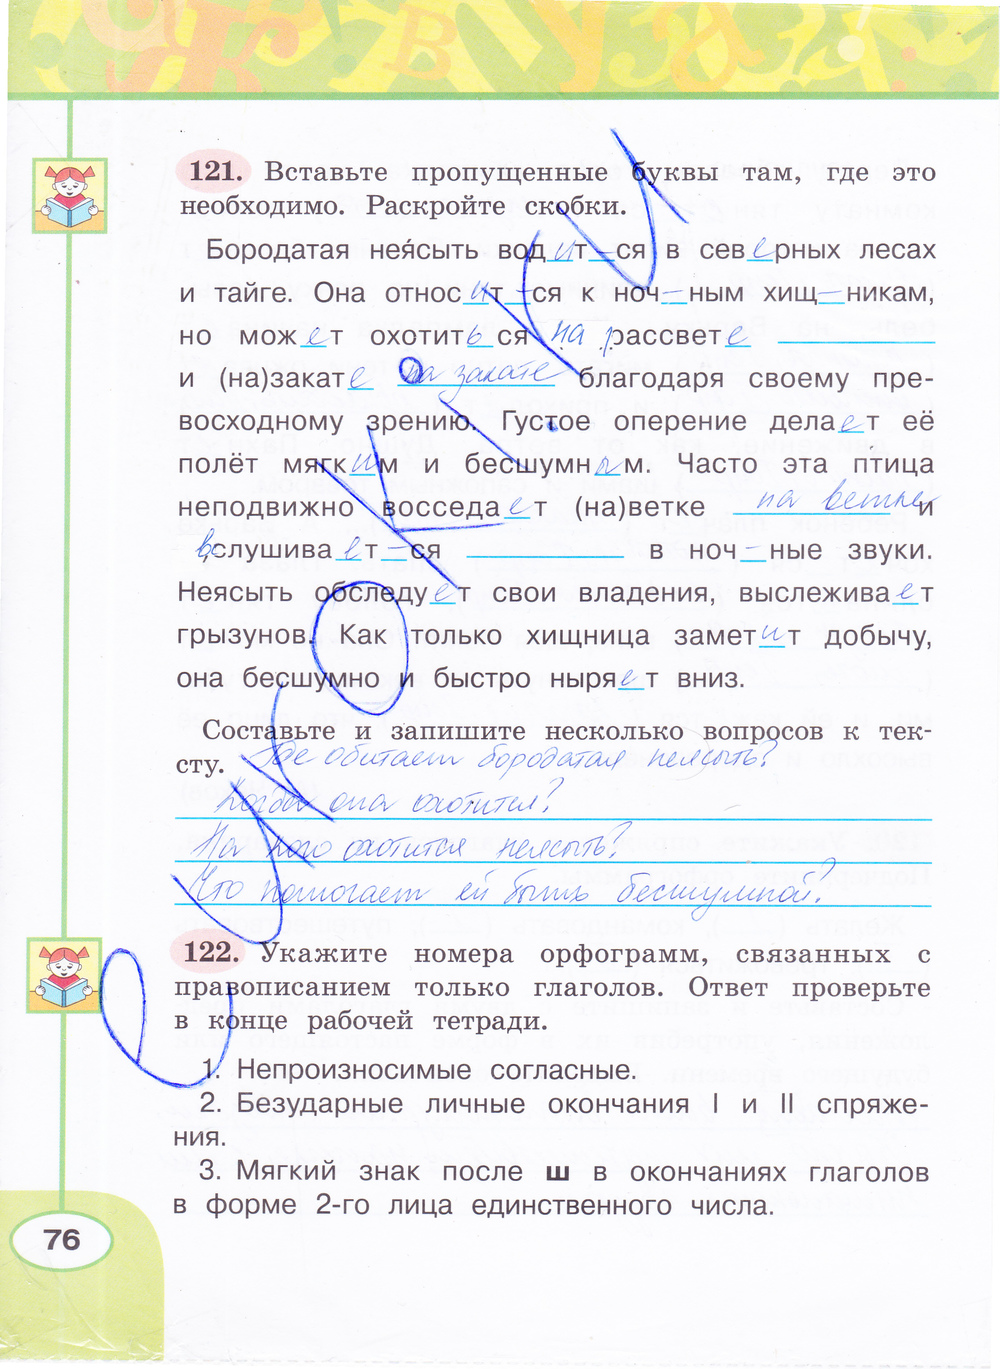 121. Вставьте пропущенные буквы там, где это
необходимо. Раскройте скобки.
Бородатая нея́сыть водит–ся в северных лесах
и тайге. Она относит–ся к ноч–ным хищ–никам,
но может охотиться на рассвете
и (на)закате на закате благодаря своему пре-
восходному зрению. Густое оперение делает её
полёт мягким и бесшумным. Часто эта птица
неподвижно восседает (на)ветке на ветке и
вслушивает–ся в ноч–ные звуки.
Неясыть обследует свои владения, выслеживает
грызунов. Как только хищница заметит добычу,
она бесшумно и быстро ныряет вниз.
Составьте и запишите несколько вопросов к тек-
сту. Где обитает бородатая неясыть?
Когда она охотится?
На кого охотится неясыть?
Что помогает ей быть бесшумной?
122. Укажите номера орфограмм, связанных с
правописанием только глаголов. Ответ проверьте
в конце рабочей тетради.
1. Непроизносимые согласные.
2. Безударные личные окончания I и II спряже-
ния.
3. Мягкий знак после ш в окончаниях глаголов
в форме 2-го лица единственного числа.
76